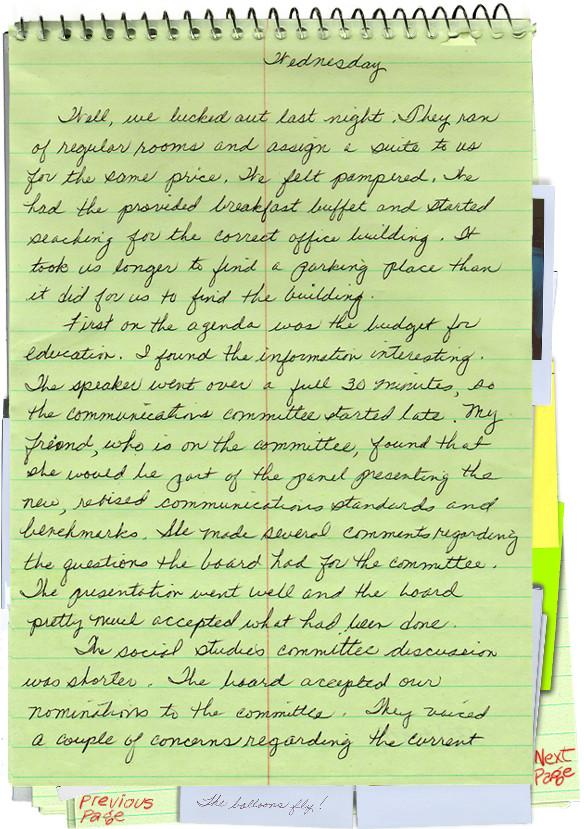 Wednesday
Well, we lucked out last night. They ran
of regular rooms and assign a suite to us
for the same price. We felt pampired. We
had the provided breakfast buffet and started
seaching for the correct office building. It
took us longer to find a parking place than
it did for us to find the building.
First on the agenda was the budget for
education. I found the information interesting.
The speaker went over a full 30 minutes, so
the communications committee started late. My
friend, who is on the committee, found that
she would be part of the panel presenting the
new, revised communications standards and
benchmarks. She made several comments regarding
the questions the board had for the committee.
The presentation went well and the board
pretty much accepted what had been done.
The social studies committee discussion
was shorter. The board accepted our
nominations to the committee. They voiced
a couple of concerns regarding the current
Next
Page
Previous
Page
The balloons fly!